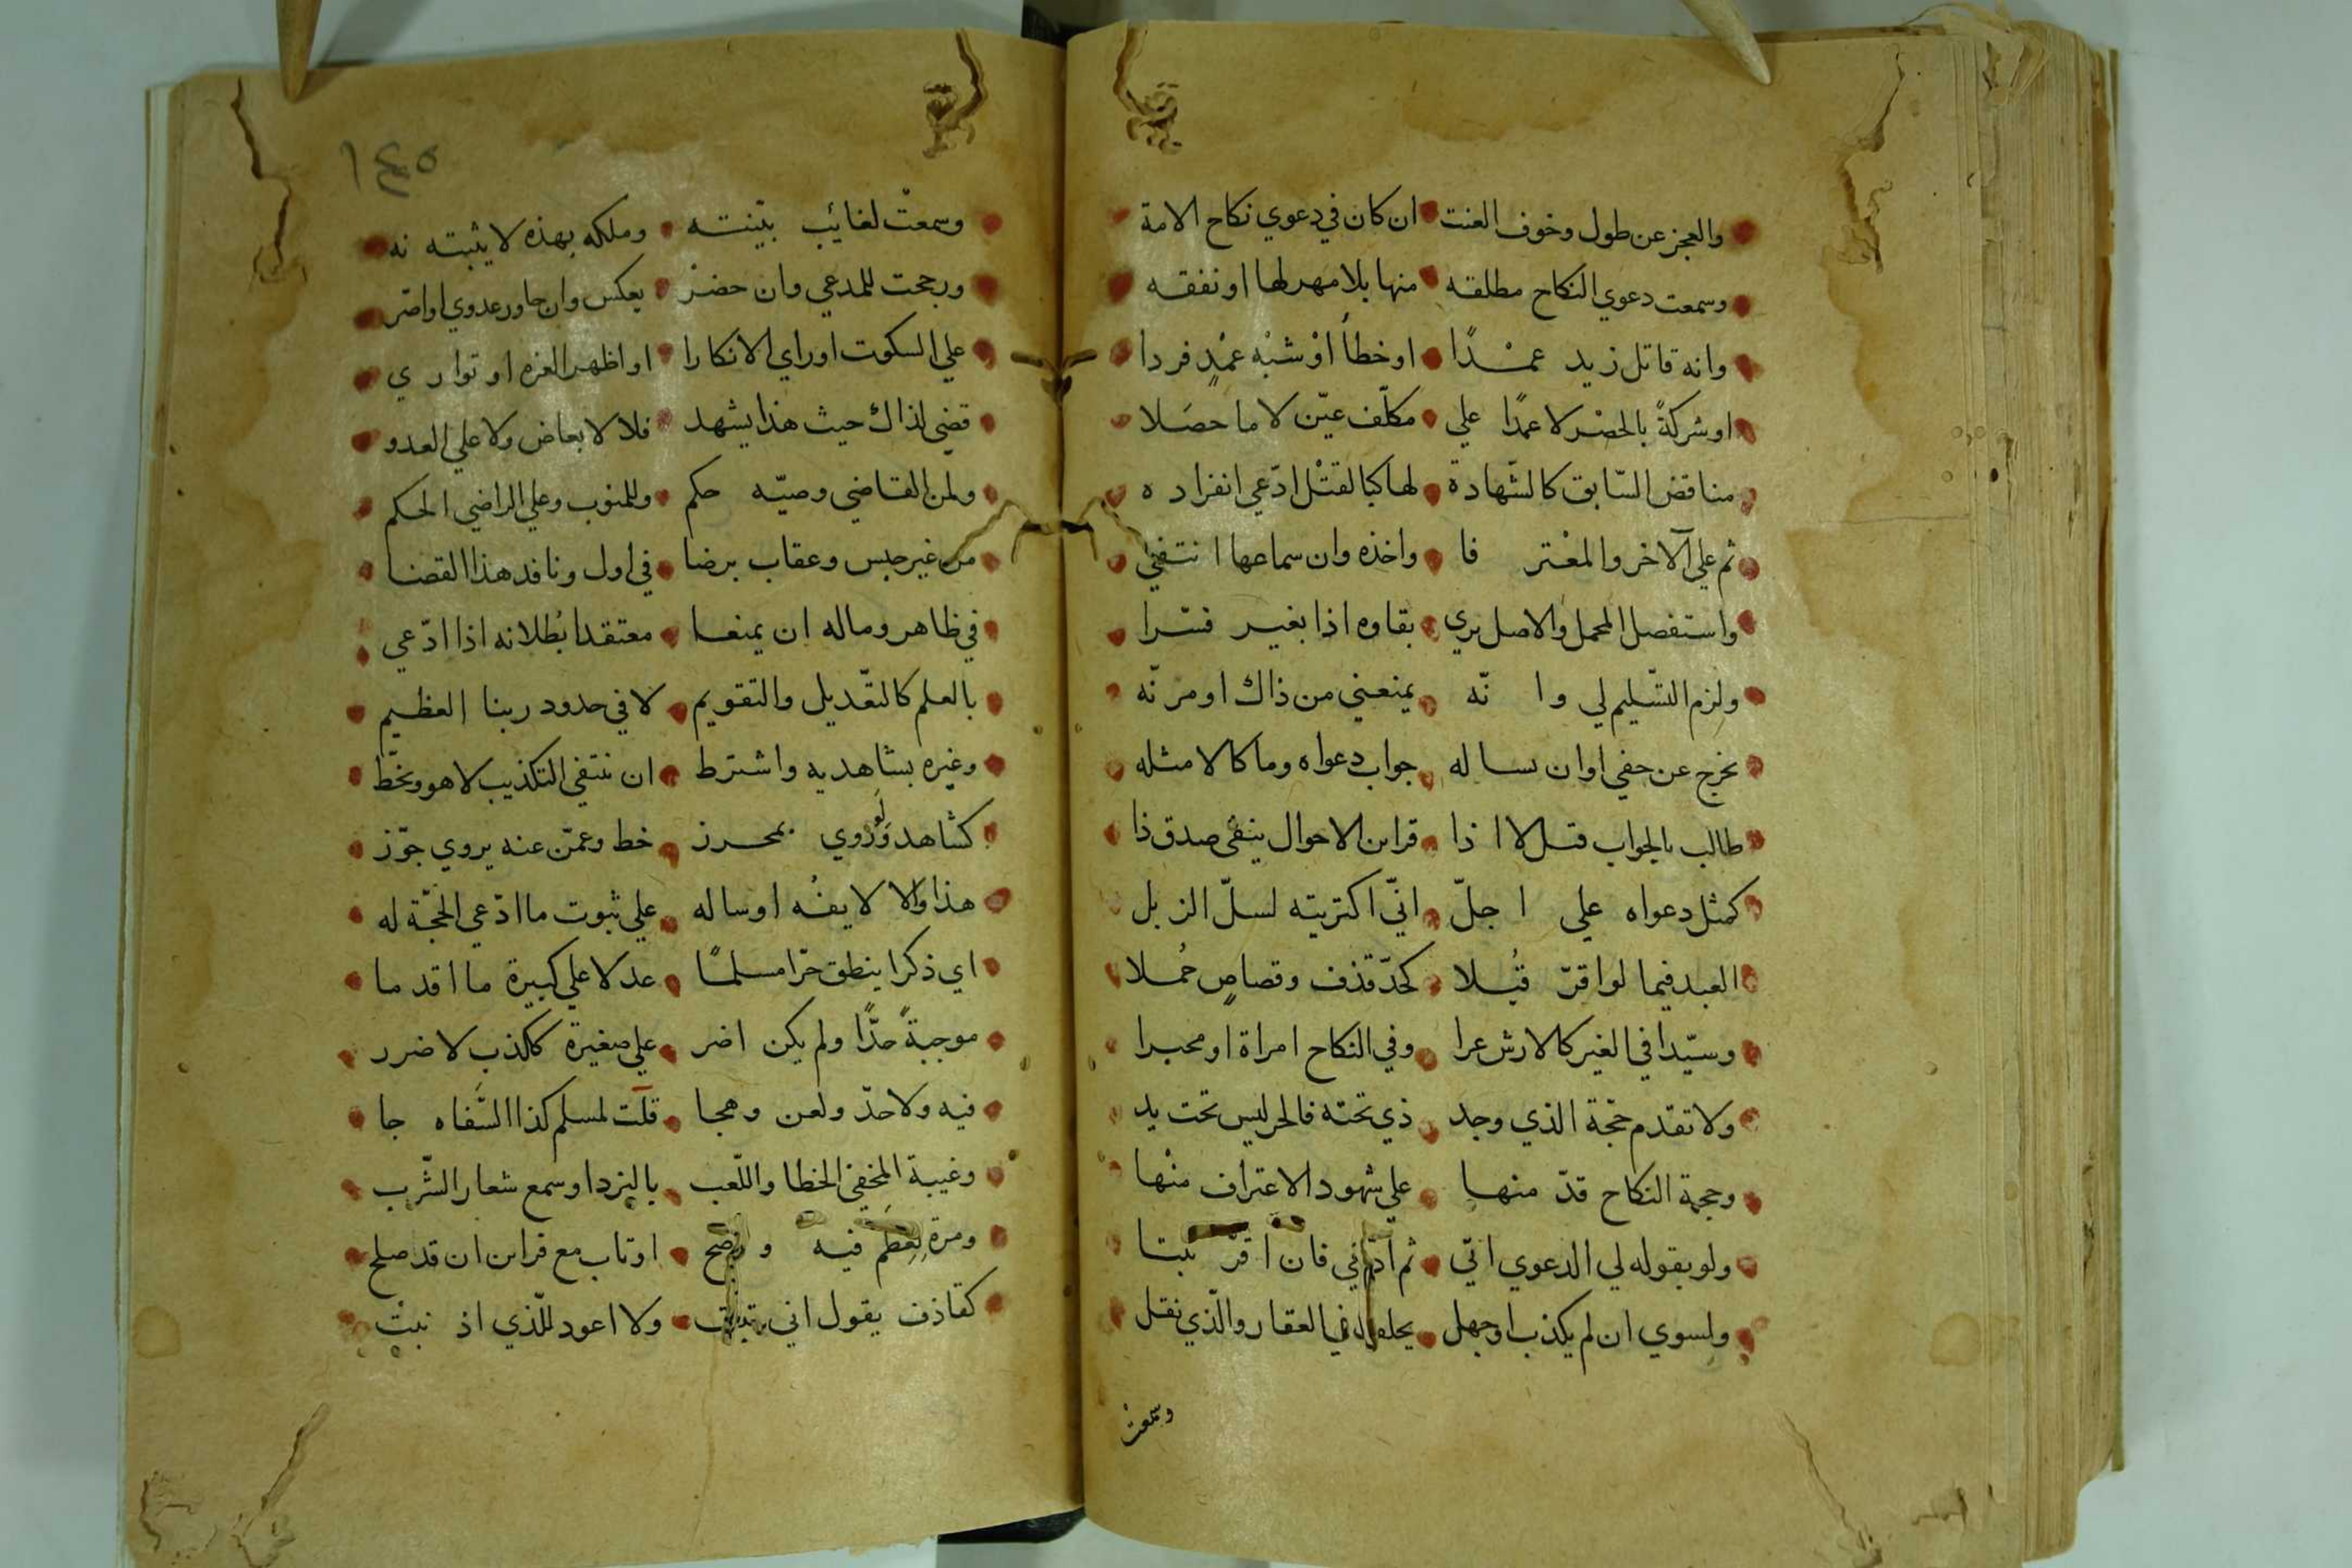 والعجز عن طول وخوف العنت ان كان في دعوي نكاح الامة
وسمعت دعوي النكاح مطلقه منها بلا مهر لها او نفقه
وانه قاتل زيد عمْدًا او خطأ اوْ شبْه عمْدٍ فردا
او شركةً بالحصْر لا عمدًا علي مكلّف عيّن لا ما حصَلا
مناقض السّابق كالشّهادة لها كبالقتْل ادّعي انفراده
ثم علي الآخر والمغْتر فا واخذه وان سماعها انتفي
واستفصل المجمل والاصل يري بقاوه اذا بغير فسّرا
ولزم التسّليم لي وانّه يمنعني من ذاك او مرنّه
يخرج عن حقي اوان ساله جواب دعواه وما كالا مثله
طالب بالجواب قتل الا اذا قراىن الاحوال ينفى صدق ذا
كمثل دعواه علي اجلّ انّي اكتريته لسلّ الزبل
العبد فيما لو اقرّ قُبلا كحدّ قذف وقصاصٍ حُملا
وسيّدا في الغير كالارش عرا وفي النكاح امراة او مجبرا
ولا تقدم حجّة الذي وجد ذي تحته فالحر ليس تحت يد
وحجة النكاح قدّ منها علي شهود الاعتراف منْها
ولو بقوله لي الدعوي اتي ثم فان اقرّ ثبتا
ولسوي ان لم يكذب اوجهل يحلف في العقار والّذي نقل
وسمعتْ
١٤٥
وسمعتْ لغائب بيّنته وملكه بهذه لا يثبته نه
ورجحت للمدعي وان حضرْ بعكس وان جاور عدوي او اصّر
علي السكوت او راي الانكارا او اظهر الغره او تواري
قضي لذاك حيث هذا يشهد فلا لابعاض ولا علي العدو
ولمن القاضي وصيّه حكم وللمنوب وعلي الراضي الحكم
من غير حبس وعقاب برضا في اول ونافد هذا القضا
في ظاهر وماله ان يمنعا معتقدا بُطلانه اذا ادّعي
بالعلم كالتعّديل والتقويم لا في حدود ربنا العظيم
وغيره بشاهديه واشترط ان ينتفي التكذيب لا هو وبخّط
كشاهد ولَوْ روي بمحرز خط وعمّن عنه يروي جوّز
هذا والا لا يفُه او ساله علي ثبوت ما ادّعي الحجّة له
اي ذكرا ينطق حرّا مسلمًا عدلا علي كبيرة ما اقدما
موجبةً حدًّا ولم يكن اضر علي صغيرة ككذب لا ضرر
فيه ولا حدّ ولعن وهجا قلت لمسلم كذا السّفاه جا
وغيبة المخفي الخطا واللّعب بالنرد او سمع شعار الشّرب
ومرة يعظم فيه و او تاب مع قراىن ان قد صلح
كقاذف يقول اني تبت ولا اعود للّذي اذ نبتْ